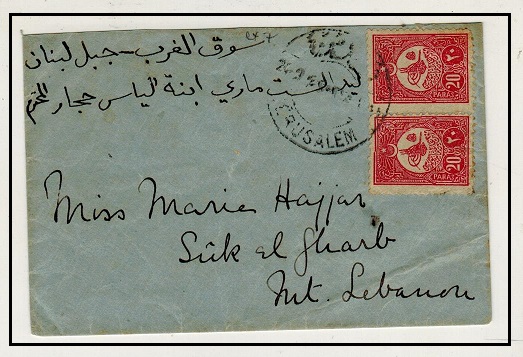 سوق الغرب - جبل لبنان
ليد الست ماري ابنة الياس حجار المحترم
JERUSALEM
20 PARAS ٢٠
20 PARAS ٢٠
Miss Marie Hajjar
Sûk el Gharb
Mt. Lebanon